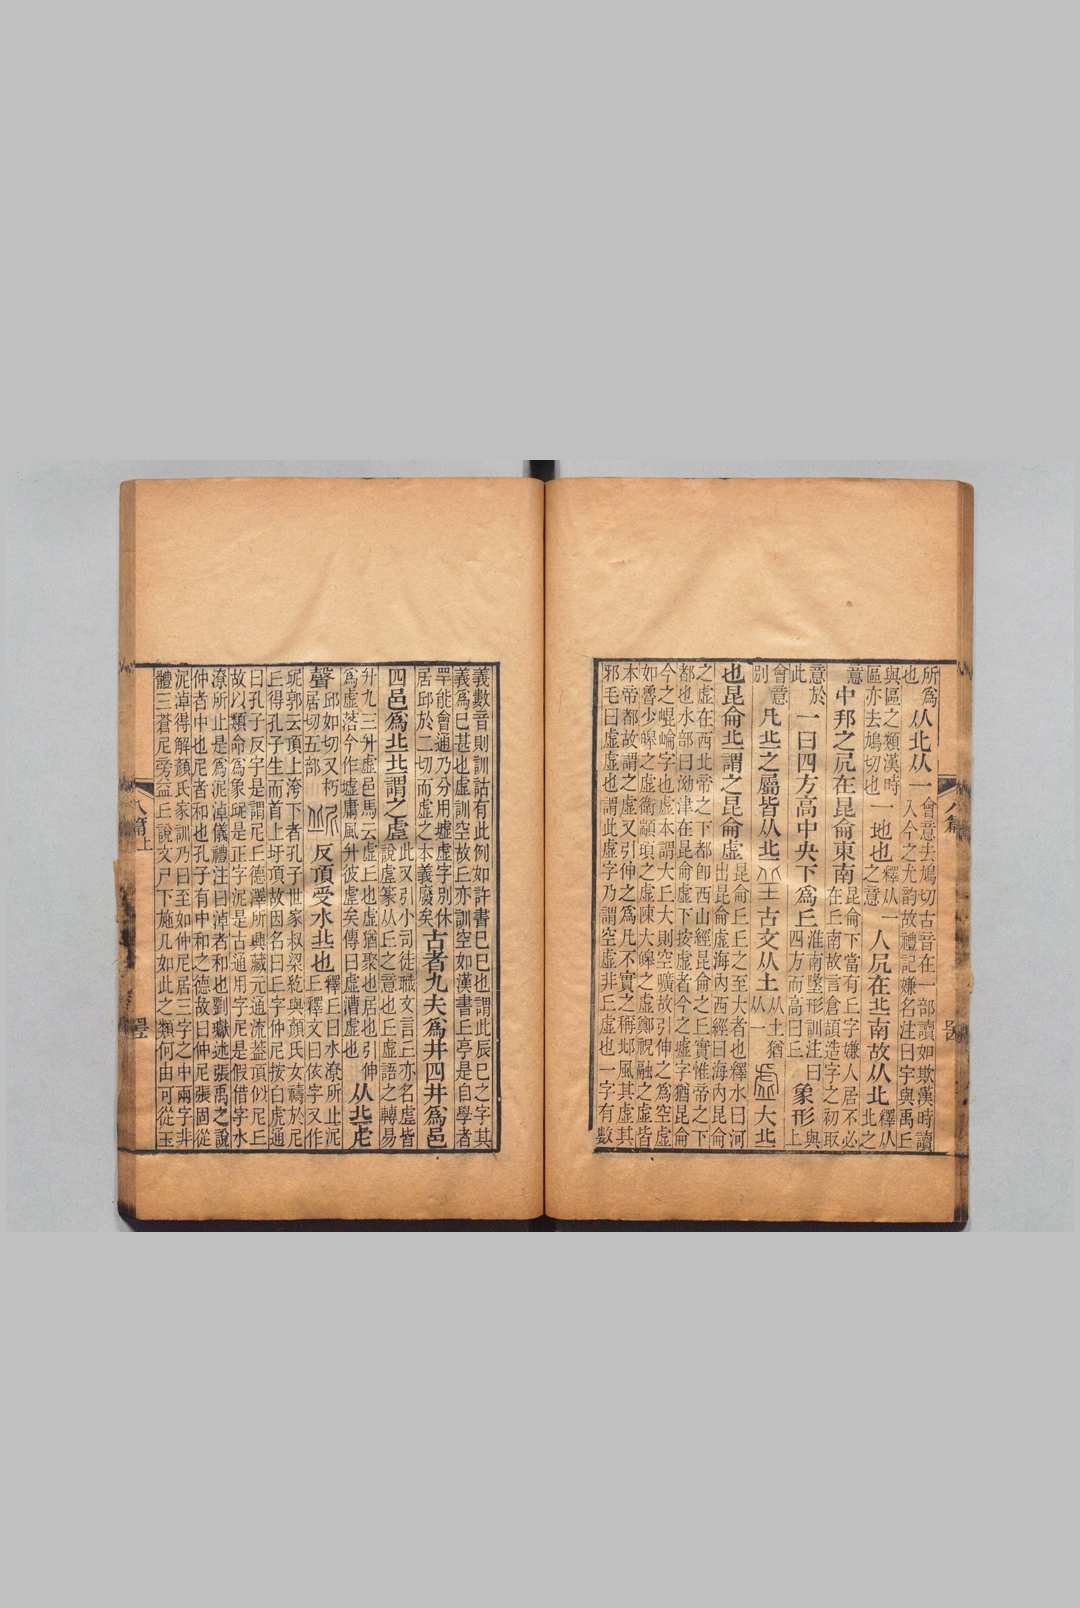 所爲
也
从北从一
會意去鳩切古音在一部讀如欺漢時讀
入今之尤韵故禮記嫌名注曰宇與禹丘
與區之類漢時
區亦去鳩切也
一地也
釋从一
之意
人凥在丠南故从北
釋从
北之
意
中邦之凥在昆侖東南
昆侖下當有丘字嫌人居不必
在丘南故言倉頡造字之初取
意於
此
一曰四方高中央下爲丘
淮南墬形訓注曰
四方而高曰丘
象形
與
上
會意
別
凡丠之屬皆从丠
𡊣
古文从土
从土猶
从一
虛
大丠
也昆侖丠謂之昆侖虛
昆侖丘丘之至大者也釋水曰河
出昆侖虛海內西經曰海內昆侖
之虛在西北帝之下都卽西山經昆侖之丘實惟帝之下
都也水部曰泑津在昆侖虛下按虛者今之墟字猶昆侖
今之崐崘字也虛本謂大丘大則空曠故引伸之爲空虛
如魯少皞之虛衞顓頊之虛陳大皞之虛鄭祝融之虛皆
本帝都故謂之虛又引伸之爲凡不實之稱邶風其虛其
邪毛曰虛虛也謂此虛字乃謂空虛非丘虛也一字有數
義數音則訓詁有此例如許書巳巳也謂此辰巳之字其
義爲巳甚也虛訓空故丘亦訓空如漢書丘亭是自學者
罕能會通乃分用墟虛字別休
居邱於二切而虛之本義廢矣
古者九夫爲井四井爲邑
四邑爲丠丠謂之虛
此又引小司徒職文言丘亦名虛皆
說虛篆从丘之意也丘虛語之轉易
升九三升虛邑馬云虛丘也虛猶聚也居也引伸
爲虛落今作墟庸風升彼虛矣傳曰虛漕虛也
从丠虍
聲
邱如切又朽
居切五部
屔
反頂受水丠也
釋丘曰水潦所止泥
丘釋文曰依字又作
屔郭云頂上洿下者孔子世家叔梁紇與顏氏女禱於尼
丘得孔子生而首上圩頂故因名曰丘字仲尼按白虎通
曰孔子反宇是謂尼丘德澤所興藏元通流蓋頂似尼丘
故以類命爲象屔是正字泥是古通用字尼是假借字水
潦所止是爲泥淖儀禮注曰淖者和也劉瓛述張禹之說
仲者中也尼者和也孔子有中和之德故曰仲尼張固從
泥淖得解顏氏家訓乃曰至如仲尼居三字之中兩字非
體三蒼尼旁益丘說文尸下施几如此之類何由可從玉
八篇上